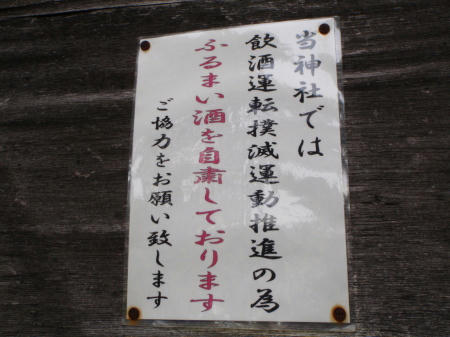 当神社では
飲酒運転撲滅運動推進の為
ふるまい酒を自粛しております
ご協力をお願い致します